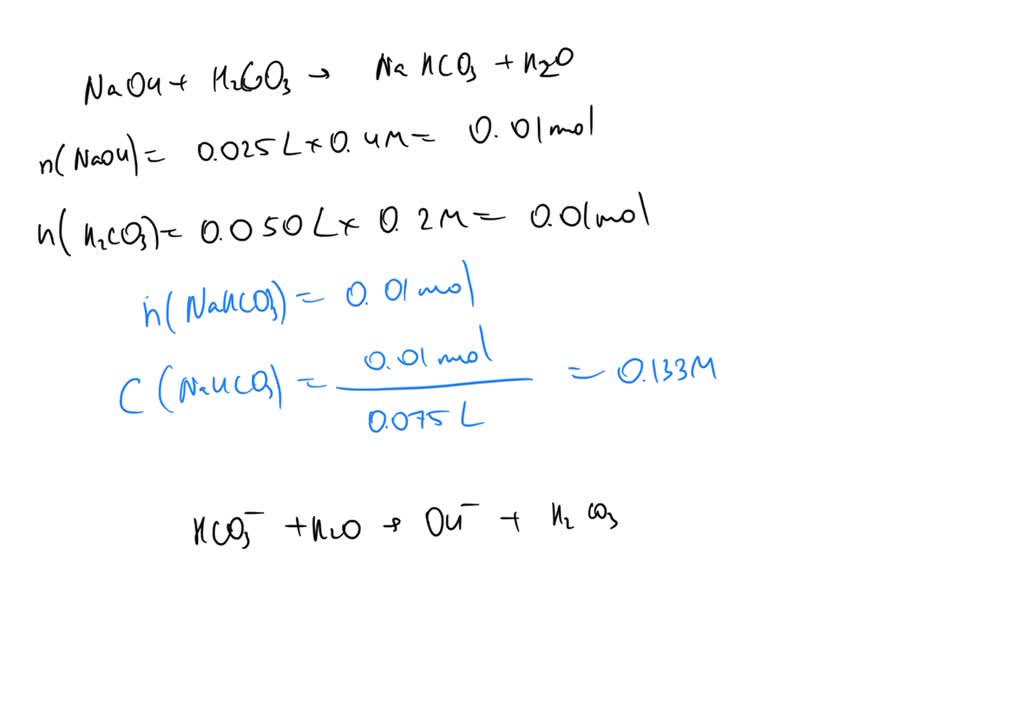 NaOH + H₂CO₃ → NaHCO₃ + H₂O
n(NaOH) = 0.025 L × 0.4M = 0.01 mol
n(H₂CO₃) = 0.050 L × 0.2M = 0.01 mol
n(NaHCO₃) = 0.01 mol
C(NaHCO₃) = 0.01 mol / 0.075 L = 0.133M
HCO₃⁻ + H₂O → OH⁻ + H₂CO₃